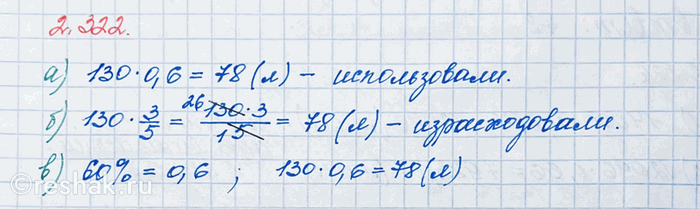 2.322.
а) 130·0,6 = 78 (л) – использовали.
б) 130 · 3/5 = 26 130·3/15 = 78 (л) – израсходовали.
в) 60% = 0,6 ; 130·0,6 = 78 (л)
©reshak.ru